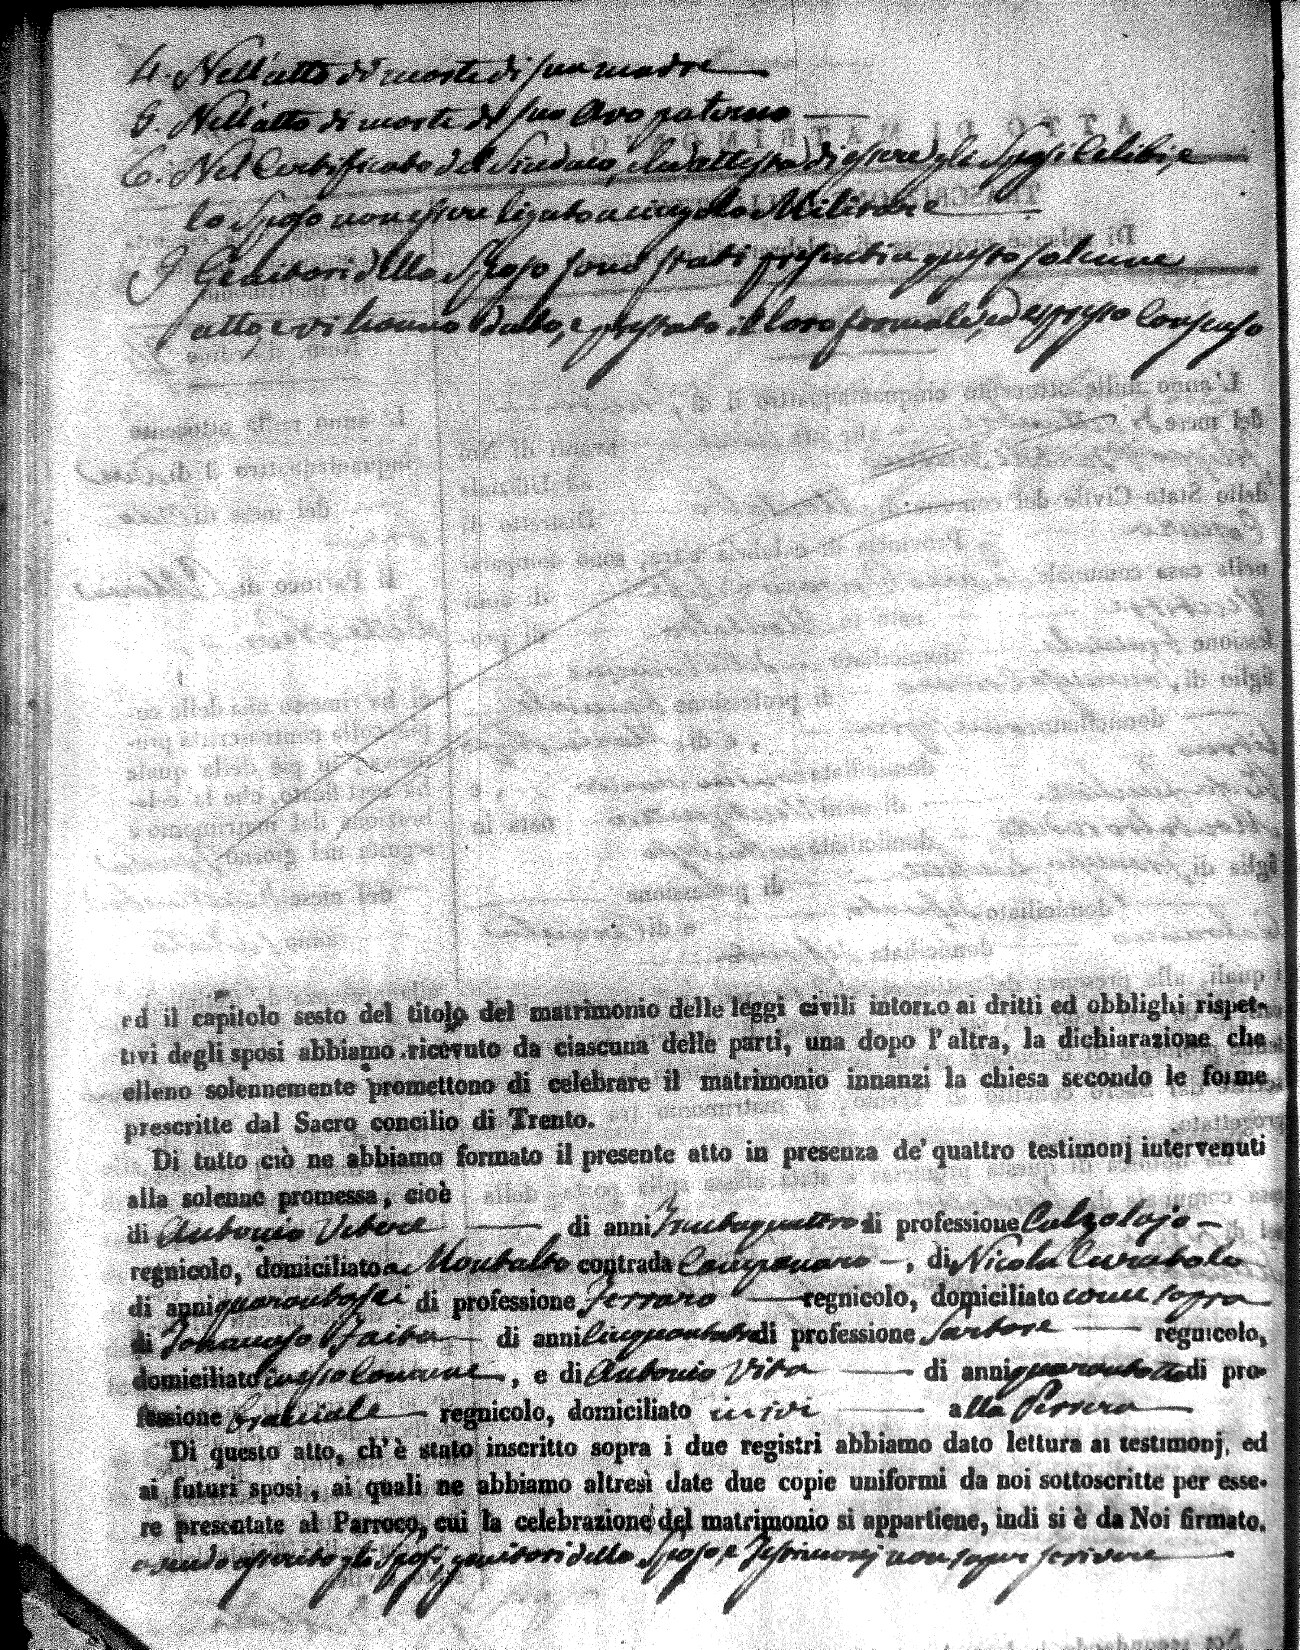 4. Nell'atto di morte di sua madre
5. Nell'atto di morte di suo Avo paterno
6. Nel Certificato del Sindaco, che attesta di essere gli Sposi Celibi, e
lo Sposo non essere ligato a cingolo Militare
I Genitori dello Sposo sono stati presenti a questo solenne
atto, e vi hanno dato, e prestato il loro formale, ed espresso Consenso
ed il capitolo sesto del titolo del matrimonio delle leggi civili intorno ai dritti ed obblighi rispet-
tivi degli sposi abbiamo ricevuto da ciascuna delle parti, una dopo l'altra, la dichiarazione che
elleno solennemente promettono di celebrare il matrimonio innanzi la chiesa secondo le forme
prescritte dal Sacro concilio di Trento.
Di tutto ciò ne abbiamo formato il presente atto in presenza de' quattro testimonj intervenuti
alla solenne promessa, cioè
di Antonio Vetere di anni trentaquattro di professione Calzolajo
regnicolo, domiciliato a Montalto contrada Campanaro, di Nicola Curatolo
di anni quarantasei di professione Ferraro regnicolo, domiciliato come sopra
di Tommaso di anni Cinquantatre di professione Sartore regnicolo,
domiciliato in esso Comune, e di Antonio Vita di anni quarantotto di pro-
fessione Braciale regnicolo, domiciliato in ivi alla
Di questo atto, ch'è stato inscritto sopra i due registri abbiamo dato lettura ai testimonj, ed
ai futuri sposi, ai quali ne abbiamo altresì date due copie uniformi da noi sottoscritte per esse-
re presentate al Parroco, cui la celebrazione del matrimonio si appartiene, indi si è da Noi firmato,
avendo asserito gli Sposi, genitori dello Sposo, e Testimonj non saper scrivere